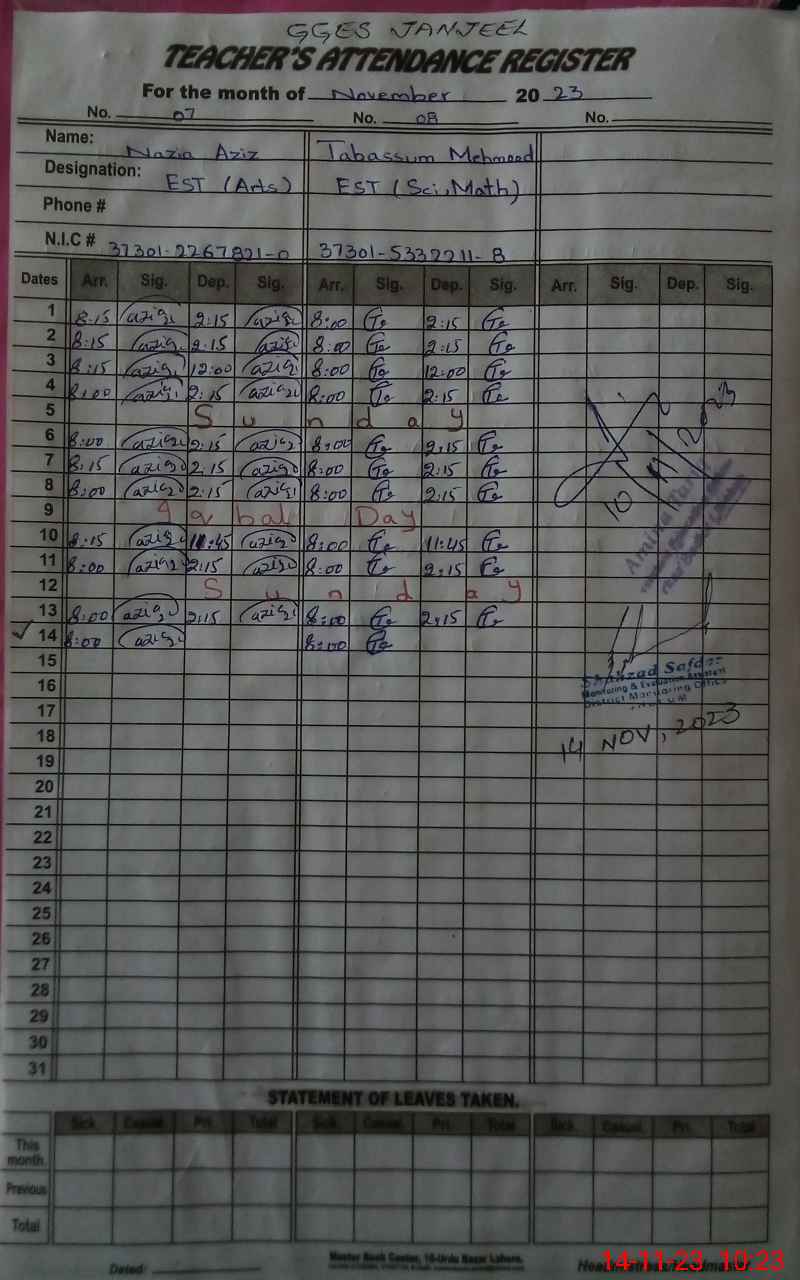 GGES JANJEEL
TEACHER'S ATTENDANCE REGISTER
For the month of November 2023
No. 07 No. 08 No.
Name: Nazia Aziz Tabassum Mehmood
Designation: EST (Arts) EST (Sci, Math)
Phone #
N.I.C # 37301-2267821-0 37301-5332211-8
Dates Arr. Sig. Dep. Sig. Arr. Sig. Dep. Sig. Arr. Sig. Dep. Sig.
1 8:15 2:15 8:00 2:15
2 8:15 2:15 8:00 2:15
3 8:15 12:00 8:00 12:00
4 8:00 2:15 8:00 2:15
5 Sunday
6 8:00 2:15 8:00 2:15
7 8:15 2:15 8:00 2:15
8 8:00 2:15 8:00 2:15
9 Iqbal Day
10 8:15 11:45 8:00 11:45
11 8:00 2:15 8:00 2:15
12 Sunday
13 8:00 2:15 8:00 2:15
14 8:00 8:00
15
16
17
18
19
20
21
22
23
24
25
26
27
28
29
30
31
10/11/2023
Shahzad Safdar
Monitoring & Evaluation Assistant
District Monitoring Office
14 NOV, 2023
STATEMENT OF LEAVES TAKEN.
Sick Casual Pri. Total Sick Casual Pri. Total Sick Casual Pri. Total
This month
Previous
Total
Master Book Center, 10-Urdu Bazar Lahore.
Dated:
14-11-23 10:23